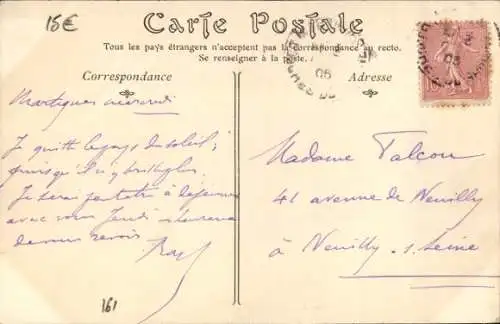 15€
Carte Postale
Tous les pays étrangers n'acceptent pas la correspondance au recto.
Se renseigner à la poste.
Correspondance
Martigues mercredi
Je quitte le pays du soleil,
puisqu'il n'y brille plus.
Je serai peut être à déjeuner
avec vous Jeudi. Heureux
de vous revoir
161
Adresse
05
10
Madame Falcou
41 avenue de Neuilly
à Neuilly s. Seine